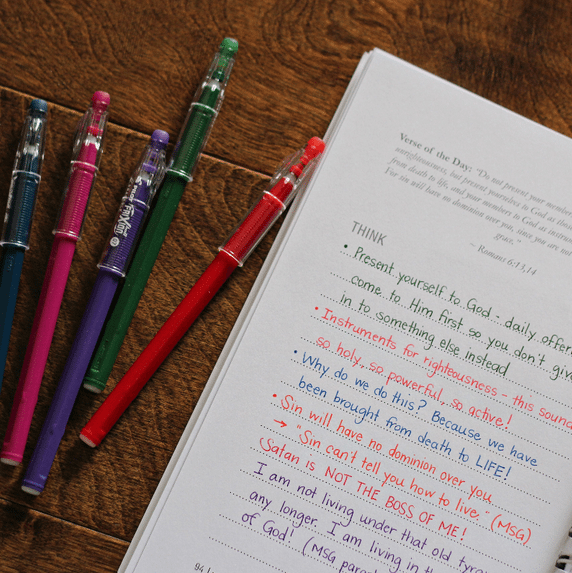 FriXion
Verse of the Day: "Do not present your member
unrighteousness, but present yourselves to God as those
from death to life, and your members to God as instrum
For sin will have no dominion over you, since you are not
grace."
~ Romans 6:13,14
THINK
• Present yourself to God - daily offeri
come to Him first so you don't give
in to something else instead
• Instruments for righteousness - this sound
so holy, so powerful, so active!
• Why do we do this? Because we have
been brought from death to LIFE!
• Sin will have no dominion over you
→ "Sin can't tell you how to live." (MSG)
Satan is NOT THE BOSS OF ME!
I am not living under that old tyra
any longer. I am living in th
of God! (MSG para
94